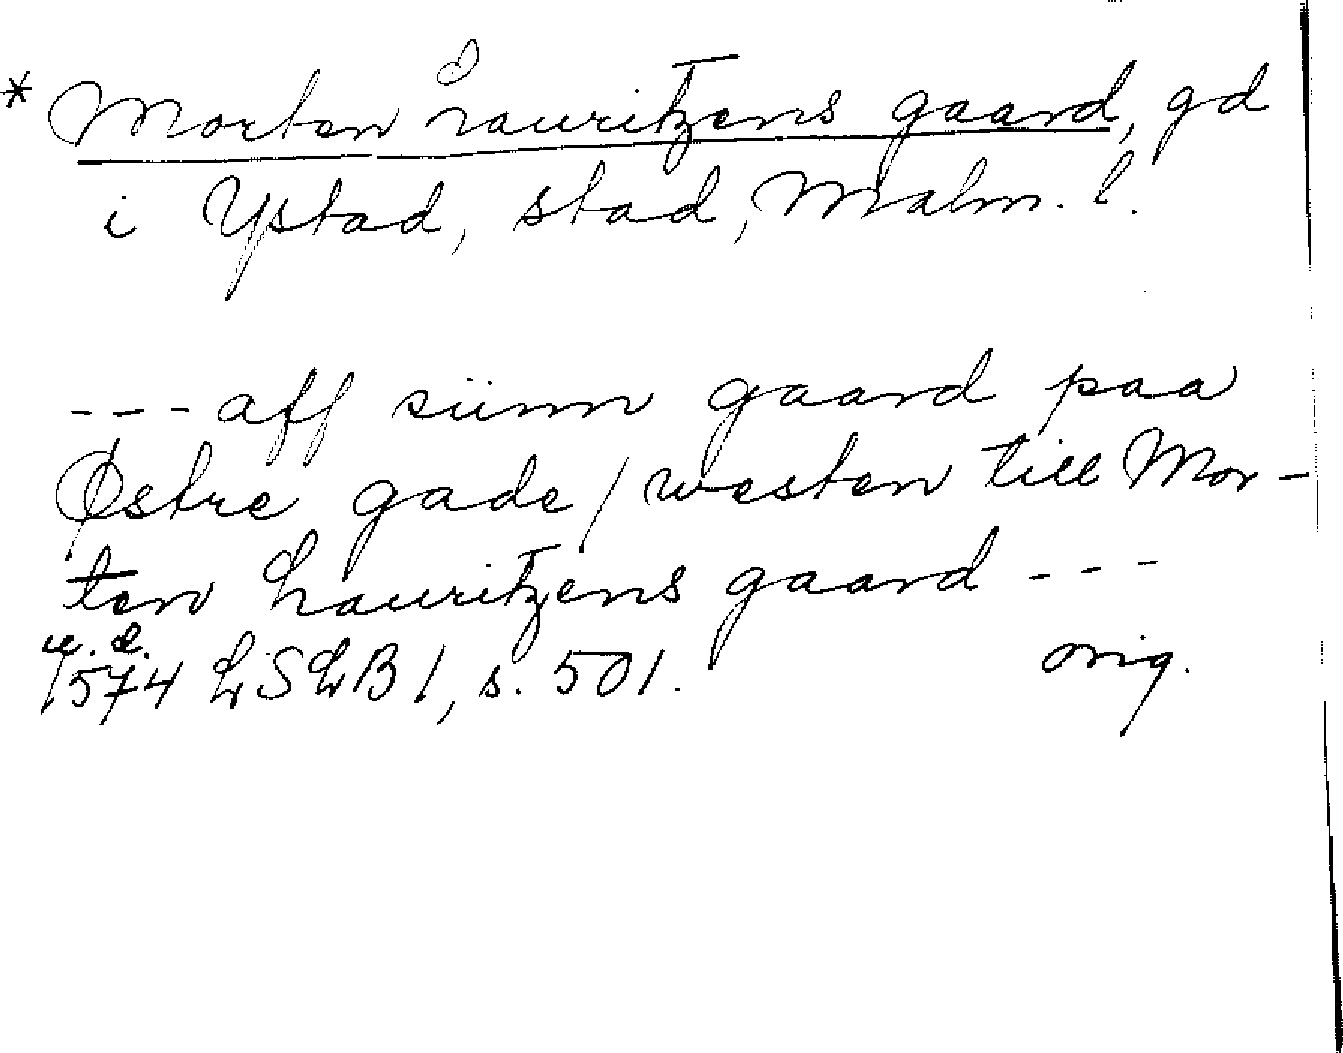 * Morten Lauritzens gaard, gd
i Ystad, stad, Malm. l.
--- aff siinn gaard paa
Østre gade / westen till Mor-
ten Lauritzens gaard ---
u. d.
1574 LSLB 1, s. 501. orig.